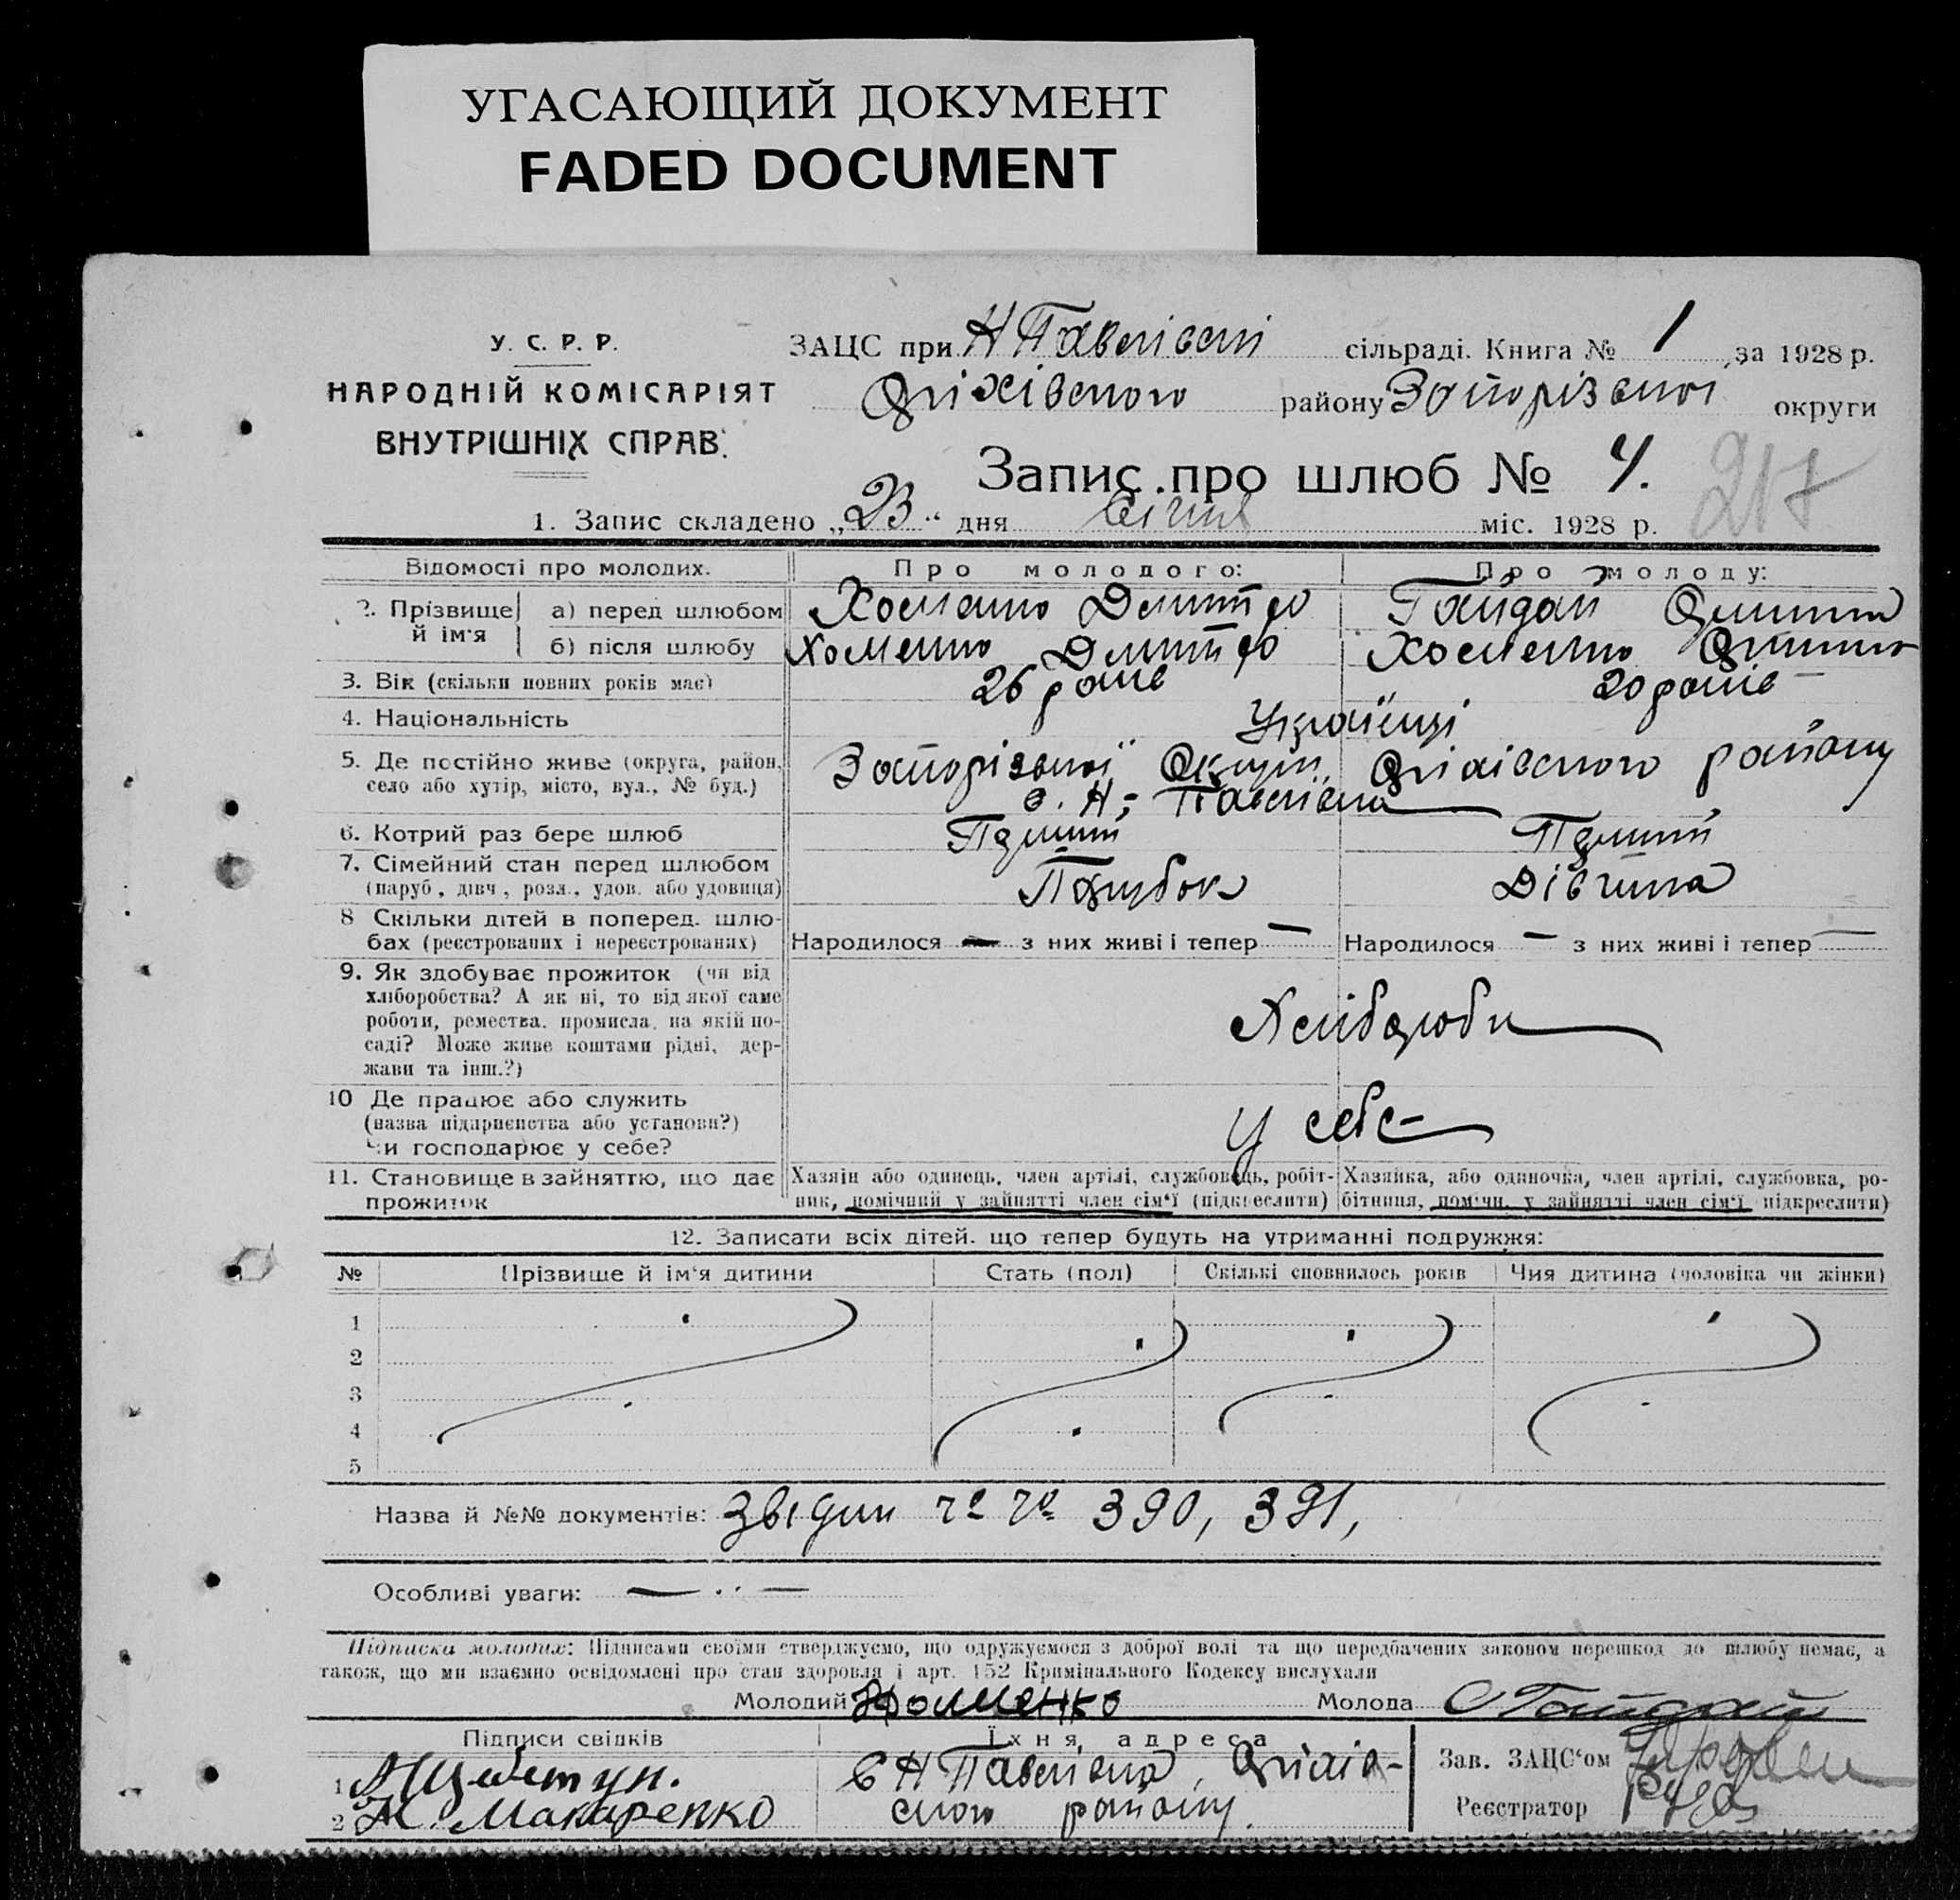 УГАСАЮЩИЙ ДОКУМЕНТ
FADED DOCUMENT
У. С. Р. Р.
НАРОДНІЙ КОМІСАРІЯТ
ВНУТРІШНІХ СПРАВ.
ЗАЦС при Н Павлівській сільраді. Книга № 1 за 1928 р.
Оріхівського району Запорізької округи
Запис про шлюб № 4.
217
1. Запис складено „23“ дня Січня міс. 1928 р.
Відомості про молодих. Про молодого: Про молоду:
2. Прізвище й ім'я а) перед шлюбом Хоменко Дмитро Гайдай
б) після шлюбу Хоменко Дмитро Хоменко
3. Вік (скільки повних років має) 26 років 20 років
4. Національність Українці
5. Де постійно живе (округа, район, село або хутір, місто, вул., № буд.) Запорізької Округи, Оріхівського району
с. Н-Павлівка
6. Котрий раз бере шлюб Перший Перший
7. Сімейний стан перед шлюбом Парубок Дівчина
(паруб., дівч., розл., удов. або удовиця)
8 Скільки дітей в поперед. шлю-
бах (реєстрованих і нереєстрованих) Народилося — з них живі і тепер — Народилося — з них живі і тепер —
9. Як здобуває прожиток (чи від
хліборобства? А як ні, то від якої саме
роботи, ремества, промисла, на якій по-
саді? Може живе коштами рідні, дер-
жави та інш.?)
Хлібороби
10 Де працює або служить
(назва підприємства або установи?)
Чи господарює у себе?
У себе
11. Становище в зайняттю, що дає прожиток
Хазяїн або одинець, член артілі, службовець, робіт-
ник, помічний у зайнятті член сім'ї (підкреслити)
Хазяйка, або одиночка, член артілі, службовка, ро-
бітниця, помічн. у зайнятті член сім'ї підкреслити)
12. Записати всіх дітей, що тепер будуть на утриманні подружжя:
№ Прізвище й ім'я дитини Стать (пол) Скількі сповнилось років Чия дитина (чоловіка чи жінки)
1
2
3
4
5
Назва й №№ документів: 390, 391,
Особливі уваги: —
Підписка молодих: Підписами своїми стверджуємо, що одружуємося з доброї волі та що передбачених законом перешкод до шлюбу немає, а
також, що ми взаємно освідомлені про стан здоровля і арт. 152 Кримінального Кодексу вислухали
Молодий Хоменко Молода Гайдай
Підписи свідків Їхня адреса
1
2 Макаренко
С Н Павлівка, Оріхів-
ського району.
Зав. ЗАЦС'ом
Реєстратор